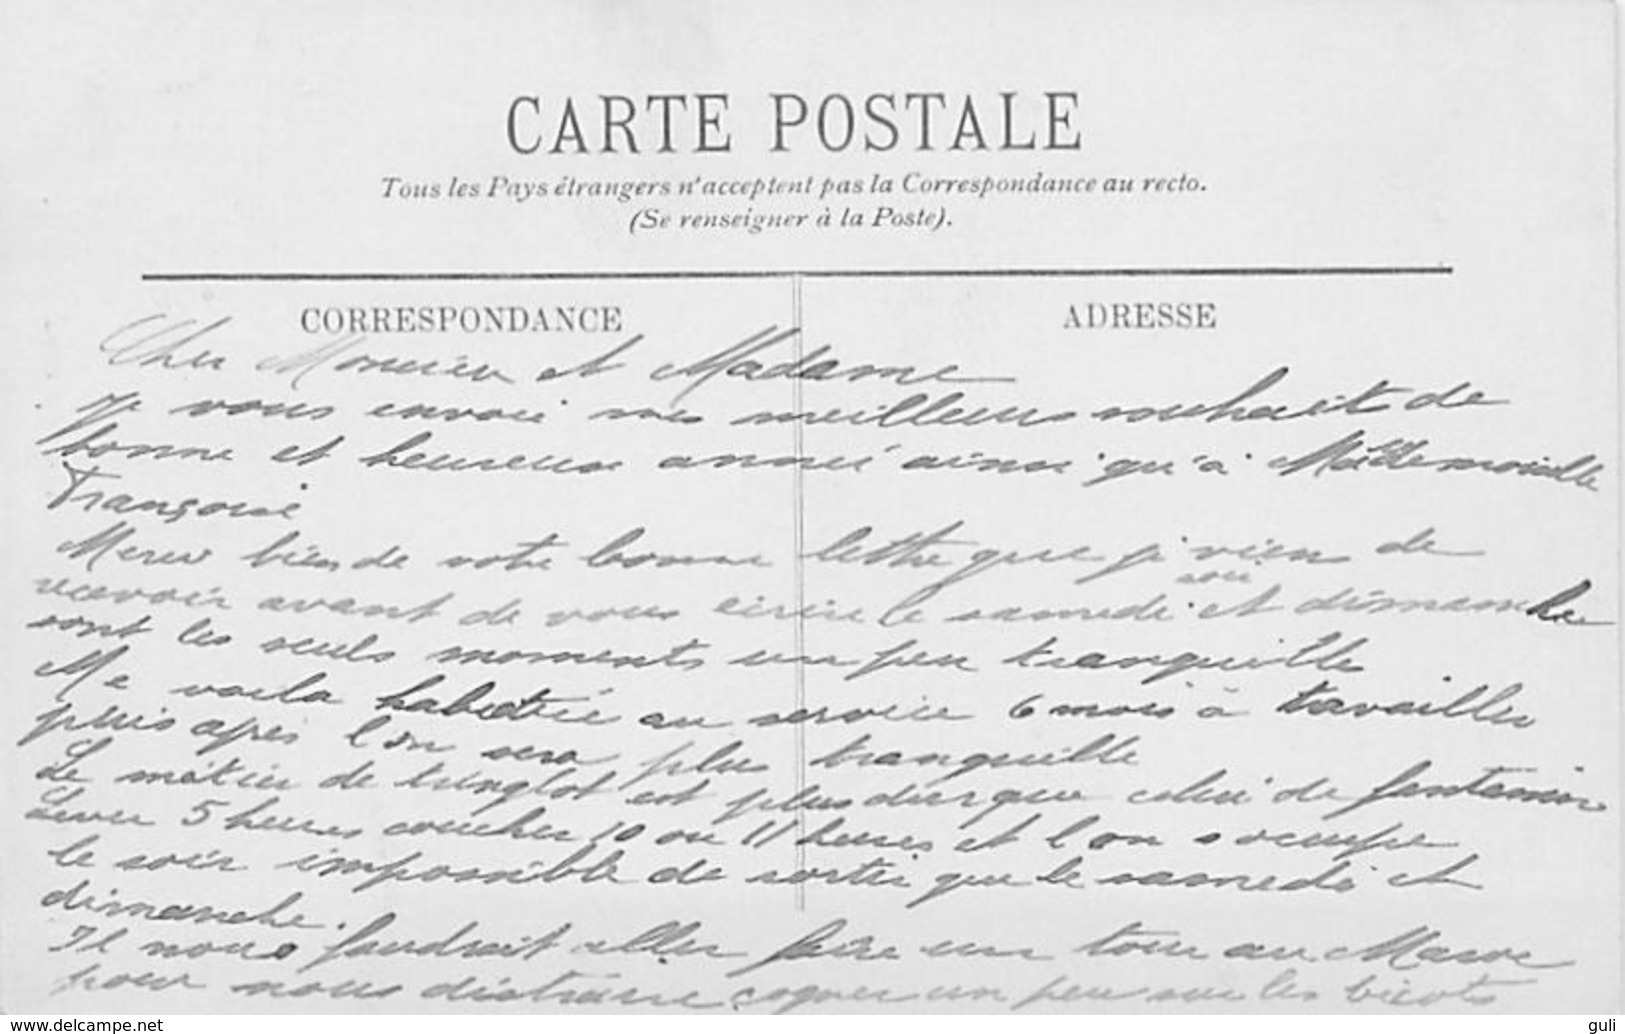 CARTE POSTALE
Tous les Pays étrangers n'acceptent pas la Correspondance au recto.
(Se renseigner à la Poste).
CORRESPONDANCE
ADRESSE
Cher Monsieu et Madame
Je vous envoie mes meilleurs souhait de
bonne et heureuse année ainsi qu'à Mademoiselle
Françoise
Merci bien de votre bonne lettre que je vien de
recevoir avant de vous ecrire le samedi soir et dimanche
sont les seuls moments un peu tranquille
Me voila habitué au service 6 mois à travailler
puis après l'on sera plus tranquille
Le métier de tringlot est plus dur que celui de fantassin
Lever 5 heures coucher 10 ou 11 heures et l'on s ocupe
le soir impossible de sortir que le samedi et
dimanche.
Il nous faudrait aller faire un tour au Maroc
pour nous distraire cogner un peu sur les bicots
www.delcampe.net
guli